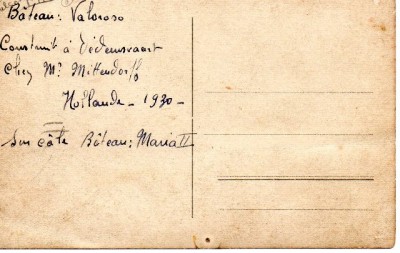 Bâteau: Valoroso
Construit à Dédemsvaart
Chez Mr. Mittendorff
Hollande - 1930 -
Sur côté Bâteau: Maria II